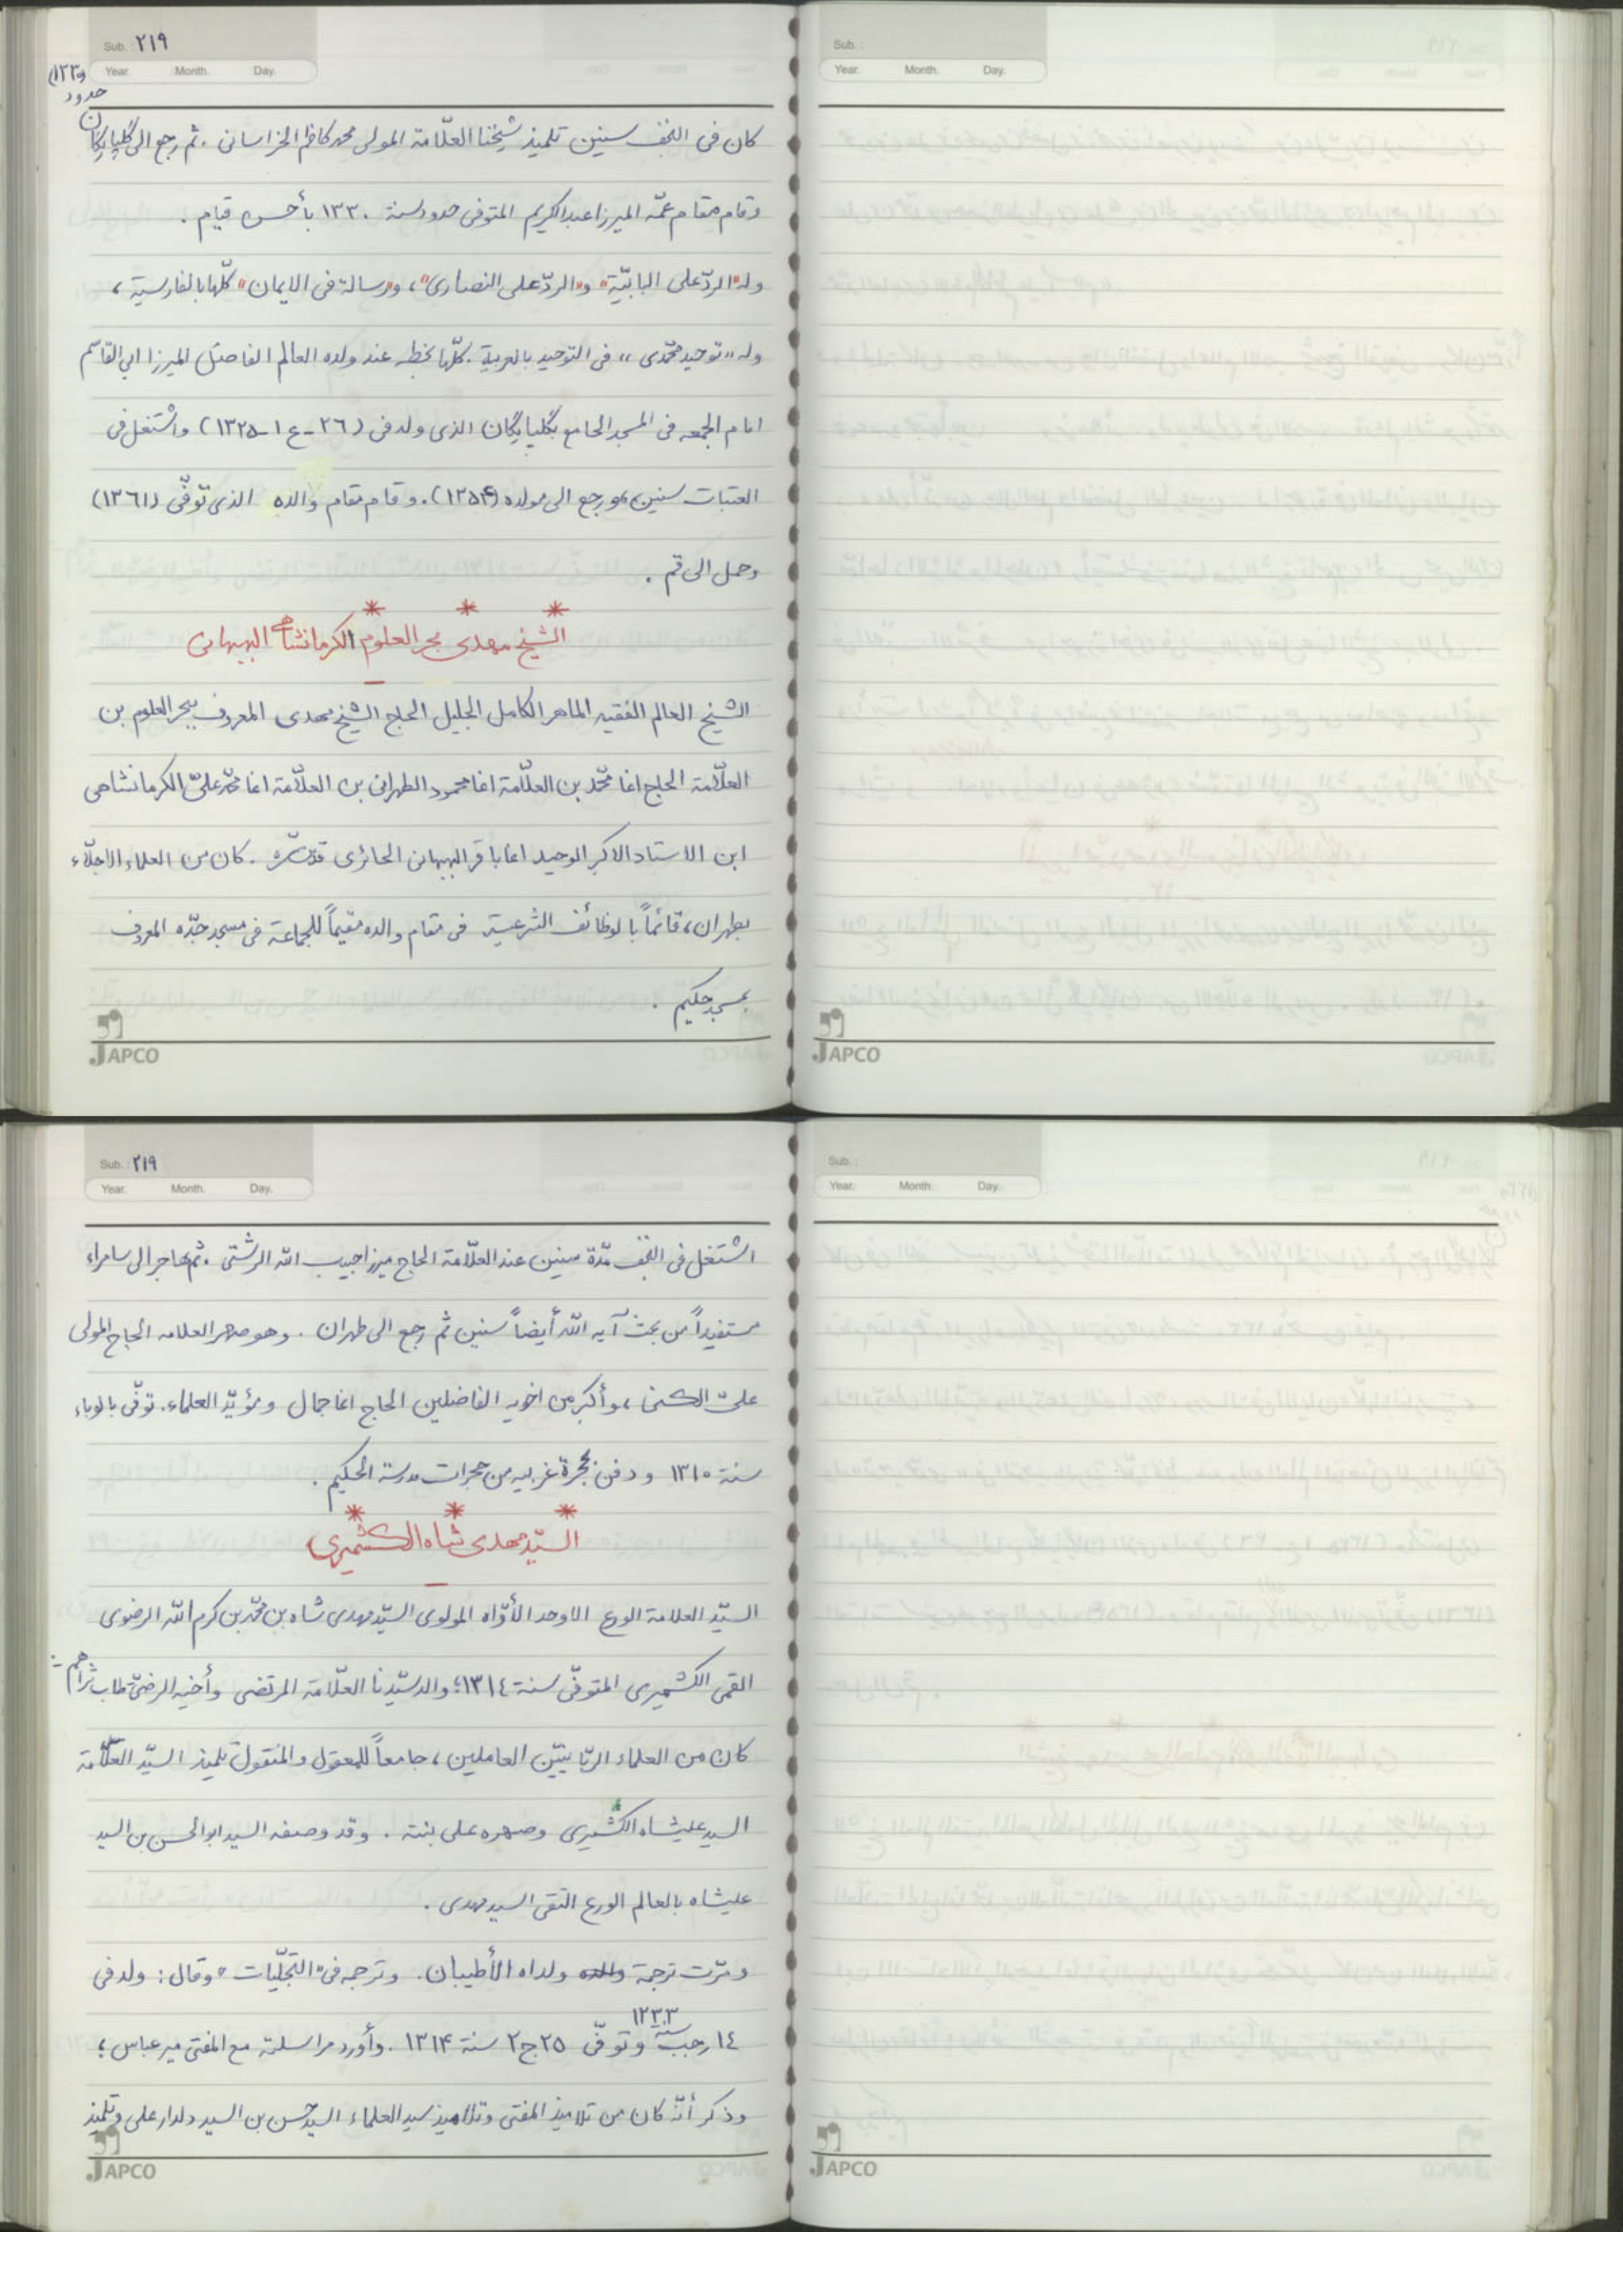 Sub. : ٢١٩
Year. Month. Day.
(١٣٣٠
حدود
كان فى النجف سنين تلميذ شيخنا العلّامة المولى محمد كاظم الخراسانى . ثم رجع الى گلپايگان
وقام مقام عمّه الميرزا عبدالكريم المتوفى حدود سنة ١٣٣٠ بأحسن قيام .
وله "الردّ على البابيّة" و"الردّ على النصارى"، و"رسالة فى الايمان" كلّها بالفارسية،
وله "توحيد محمّدى" فى التوحيد بالعربية . كلّها بخطه عند ولده العالم الفاضل الميرزا ابى القاسم
امام الجمعه فى المسجد الجامع بگلپايگان الذى ولد فى (٢٦-ع١-١٣٢٥) واشتغل فى
العتبات سنين، ورجع الى مولده (١٣٥٤). وقام مقام والده الذى توفّى (١٣٦١)
وحمل الى قم .
* * *
الشيخ مهدى بحر العلوم الكرمانشاهى البهبهانى
الشيخ العالم الفقيه الماهر الكامل الجليل الحاج الشيخ مهدى المعروف ببحر العلوم بن
العلّامة الحاج اغا محمّد بن العلّامة اغا محمود الطهرانى بن العلّامة اغا محمّد علىّ الكرمانشاهى
ابن الاستاد الاكبر الوحيد اغا باقر البهبهانى الحائرى قدّس سرّه . كان من العلماء الاجلّاء
بطهران، قائماً بالوظائف الشرعية فى مقام والده مقيماً للجماعة فى مسجد جدّه المعروف
بمسجد حكيم .
JAPCO
Sub. :
Year. Month. Day.
JAPCO
Sub. : ٢١٩
Year. Month. Day.
اشتغل فى النجف مدّة سنين عند العلّامة الحاج ميرزا حبيب الله الرشتى . ثم هاجر الى سامراء
مستفيداً من بحث آية الله أيضاً سنين ثم رجع الى طهران . وهو صهر العلامه الحاج المولى
علىّ الكنى، وأكبر من اخويه الفاضلين الحاج اغا جمال ومؤيّد العلماء. توفّى بالوباء
سنة ١٣١٠ ودفن بحجرة غربيه من حجرات مدرسة الحكيم .
* * *
السيّد مهدى شاه الكشميرى
السيّد العلامة الورع الاوحد الأوّاه المولوى السيّد مهدى شاه بن محمّد بن كرم الله الرضوى
القمى الكشميرى المتوفّى سنة ١٣١٤؛ والد سيّدنا العلّامة المرتضى وأخيه الرضىّ طاب ثراهم:
كان من العلماء الربّانيّين العاملين، جامعاً للمعقول والمنقول، تلميذ السيّد العلّامة
السيد عليشاه الكشميرى وصهره على بنته . وقد وصفه السيد ابو الحسن بن السيد
عليشاه بالعالم الورع التقى السيد مهدى .
ومرّت ترجمة ولداه الأطيبان. وترجمه فى "التجلّيات" وقال: ولد فى
١٤ رجب سنة ١٢٣٣ وتوفّى ٢٥ ج٢ سنة ١٣١٤ . وأورد مراسلته مع المفتى مير عباس؛
وذكر أنّه كان من تلاميذ المفتى وتلاميذ سيد العلماء السيد حسن بن السيد دلدار على وتلميذ
JAPCO
Sub. :
Year. Month. Day.
JAPCO